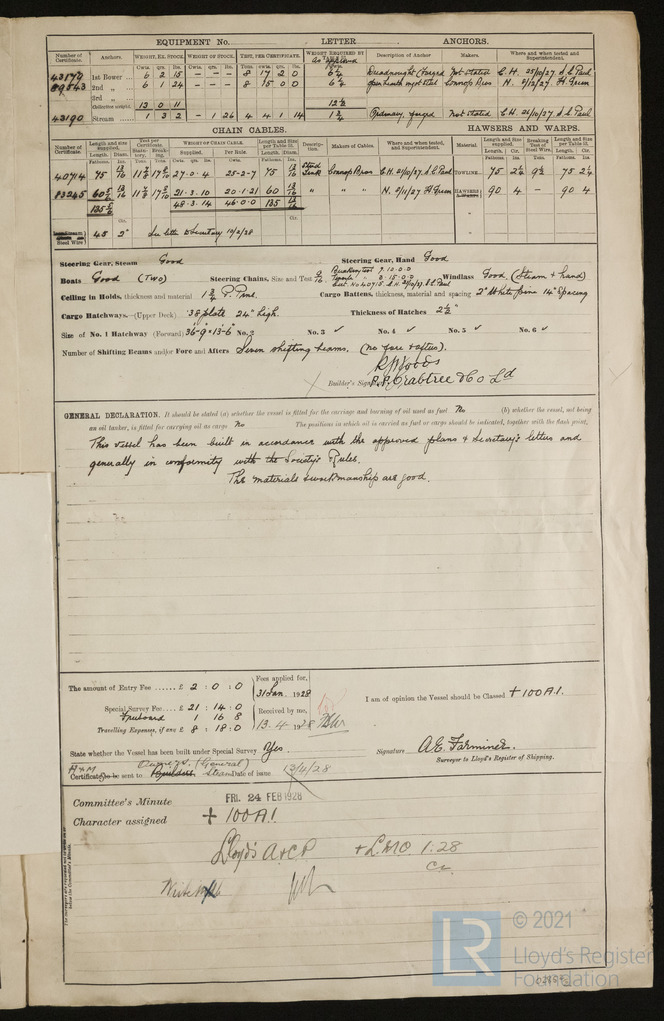 EQUIPMENT No. LETTER ANCHORS.
Number of Certificate. Anchors. WEIGHT, EX. STOCK. WEIGHT OF STOCK. TEST, PER CERTIFICATE. WEIGHT REQUIRED BY Description of Anchor Makers. Where and when tested and Superintendent.
Cwts. qrs. lbs. Cwts. qrs. lbs. Tons. cwts. qrs. lbs. Cwts.
43170 1st Bower 6 2 15 – – – 8 17 2 0 6¼ Dreadnought Forged Not stated C.H. 25/10/27 S.C. Paul
89543 2nd „ 6 1 24 – – – 8 15 0 0 6¼ N. 2/12/27 H Green
3rd „
Collective weight 13 0 11 12½
43190 Stream 1 3 2 – 1 26 4 4 1 14 1¾ Ordinary, forged Not stated C.H. 26/10/27 S.C. Paul
CHAIN CABLES. HAWSERS AND WARPS.
Number of Certificate. Length and size supplied. Test per Certificate. WEIGHT OF CHAIN CABLE. Length and Size per Table 53. Description. Makers of Cables. Where and when tested, and Superintendent. Material Length and Size supplied. Breaking Test of Steel Wire. Length and Size per Table 53.
Length. Diam. Statutory. Breaking. Supplied. Per Rule. Length. Diam. Length. Cir. Length. Cir.
40714 75 13/16 27·0·4 25-2-7 75 13/16 Stud Link C.H. 21/10/27. S.C. Paul TOWLINE 75 2¼ 9½ 75 2¼
83245 60 5/6 13/16 21·3·10 20·1·21 60 13/16 „ „ N. 2/11/27 H Green HAWSERS 90 4 – 90 4
135 5/6 48·3·14 46·0·0 135 13/16
Steel Wire 45 2" See letter to Secretary 10/2/28
Steering Gear, Steam Good Steering Gear, Hand Good
Boats Good (Two) Steering Chains, Size and Test 9/16 Breaking test 7·10·0·0 Tensile „ 3·15·0·0 Cert. No 40715. C.H. 21/10/27. S.C. Paul Windlass Good (Steam & hand)
Ceiling in Holds, thickness and material 1¾ P. Pine. Cargo Battens, thickness, material and spacing 2" White pine 14" Spacing
Cargo Hatchways.—(Upper Deck) .38 plate 24" high. Thickness of Hatches 2½"
Size of No. 1 Hatchway (Forward) 36'-9" × 13'-6" No. 2 No. 3 ✓ No. 4 ✓ No. 5 ✓ No. 6 ✓
Number of Shifting Beams and/or Fore and Afters Seven shifting beams, (no fore & afters).
R. Woods
Builder's Signature P.P. Crabtree & Co Ld
GENERAL DECLARATION. It should be stated (a) whether the vessel is fitted for the carriage and burning of oil used as fuel No (b) whether the vessel, not being
an oil tanker, is fitted for carrying oil as cargo No The positions in which oil is carried as fuel or cargo should be indicated, together with the flash point.
This vessel has been built in accordance with the approved plans & Secretary's letters and
generally in conformity with the Society's Rules.
The materials & workmanship are good.
The amount of Entry Fee ...... £ 2 : 0 : 0
Special Survey Fee .... £ 21 : 14 : 0
Freeboard 1 16 8
Travelling Expenses, if any £ 8 : 18 : 0
Fees applied for,
31 Jan. 1928
Received by me,
13. 4. 1928
I am of opinion the Vessel should be Classed + 100 A1.
State whether the Vessel has been built under Special Survey Yes.
Signature A.E. Farminer.
Surveyor to Lloyd's Register of Shipping.
Certificate to be sent to Builders. Owners. (General) Date of issue 13/4/28
Committee's Minute FRI. 24 FEB 1928
Character assigned + 100 A1.
Lloyd's A & C.P. + L.M.C. 1.28
© 2021
LR
Lloyd's Register
Foundation